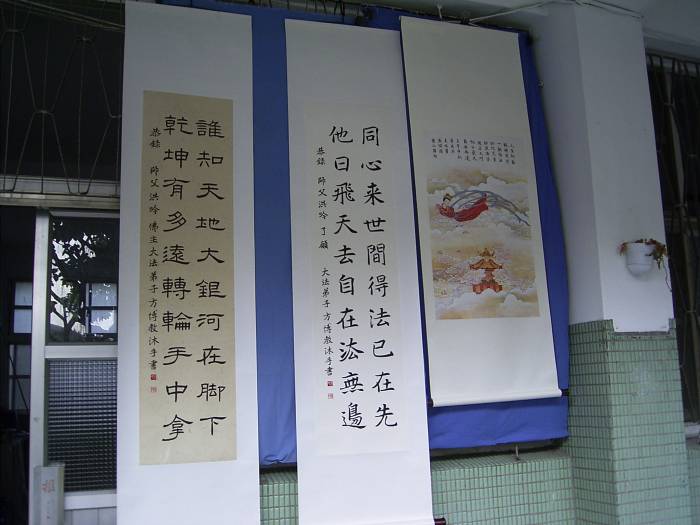 誰知天地大銀河在脚下
乾坤有多遠轉輪手中拿
恭錄 師父洪吟 佛主 大法弟子方博教沐手書
同心来世間得法已在先
他日飛天去自在法無邊
恭錄 師父洪吟 了願 大法弟子方博教沐手書